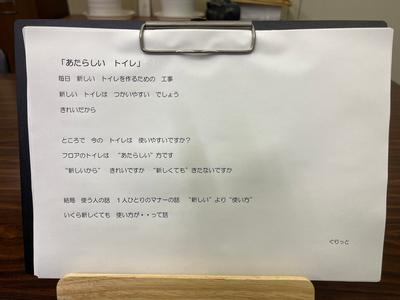 「あたらしい　トイレ」
毎日　新しい　トイレを作るための　工事
新しい　トイレは　つかいやすい　でしょう
きれいだから
ところで　今の　トイレは　使いやすいですか？
フロアのトイレは　“あたらしい”方です
“新しいから”　きれいですか　“新しくても”きたないですか
結局　使う人の話　１人ひとりのマナーの話　“新しい”より“使い方”
いくら新しくても　使い方が・・って話
ぐりっと